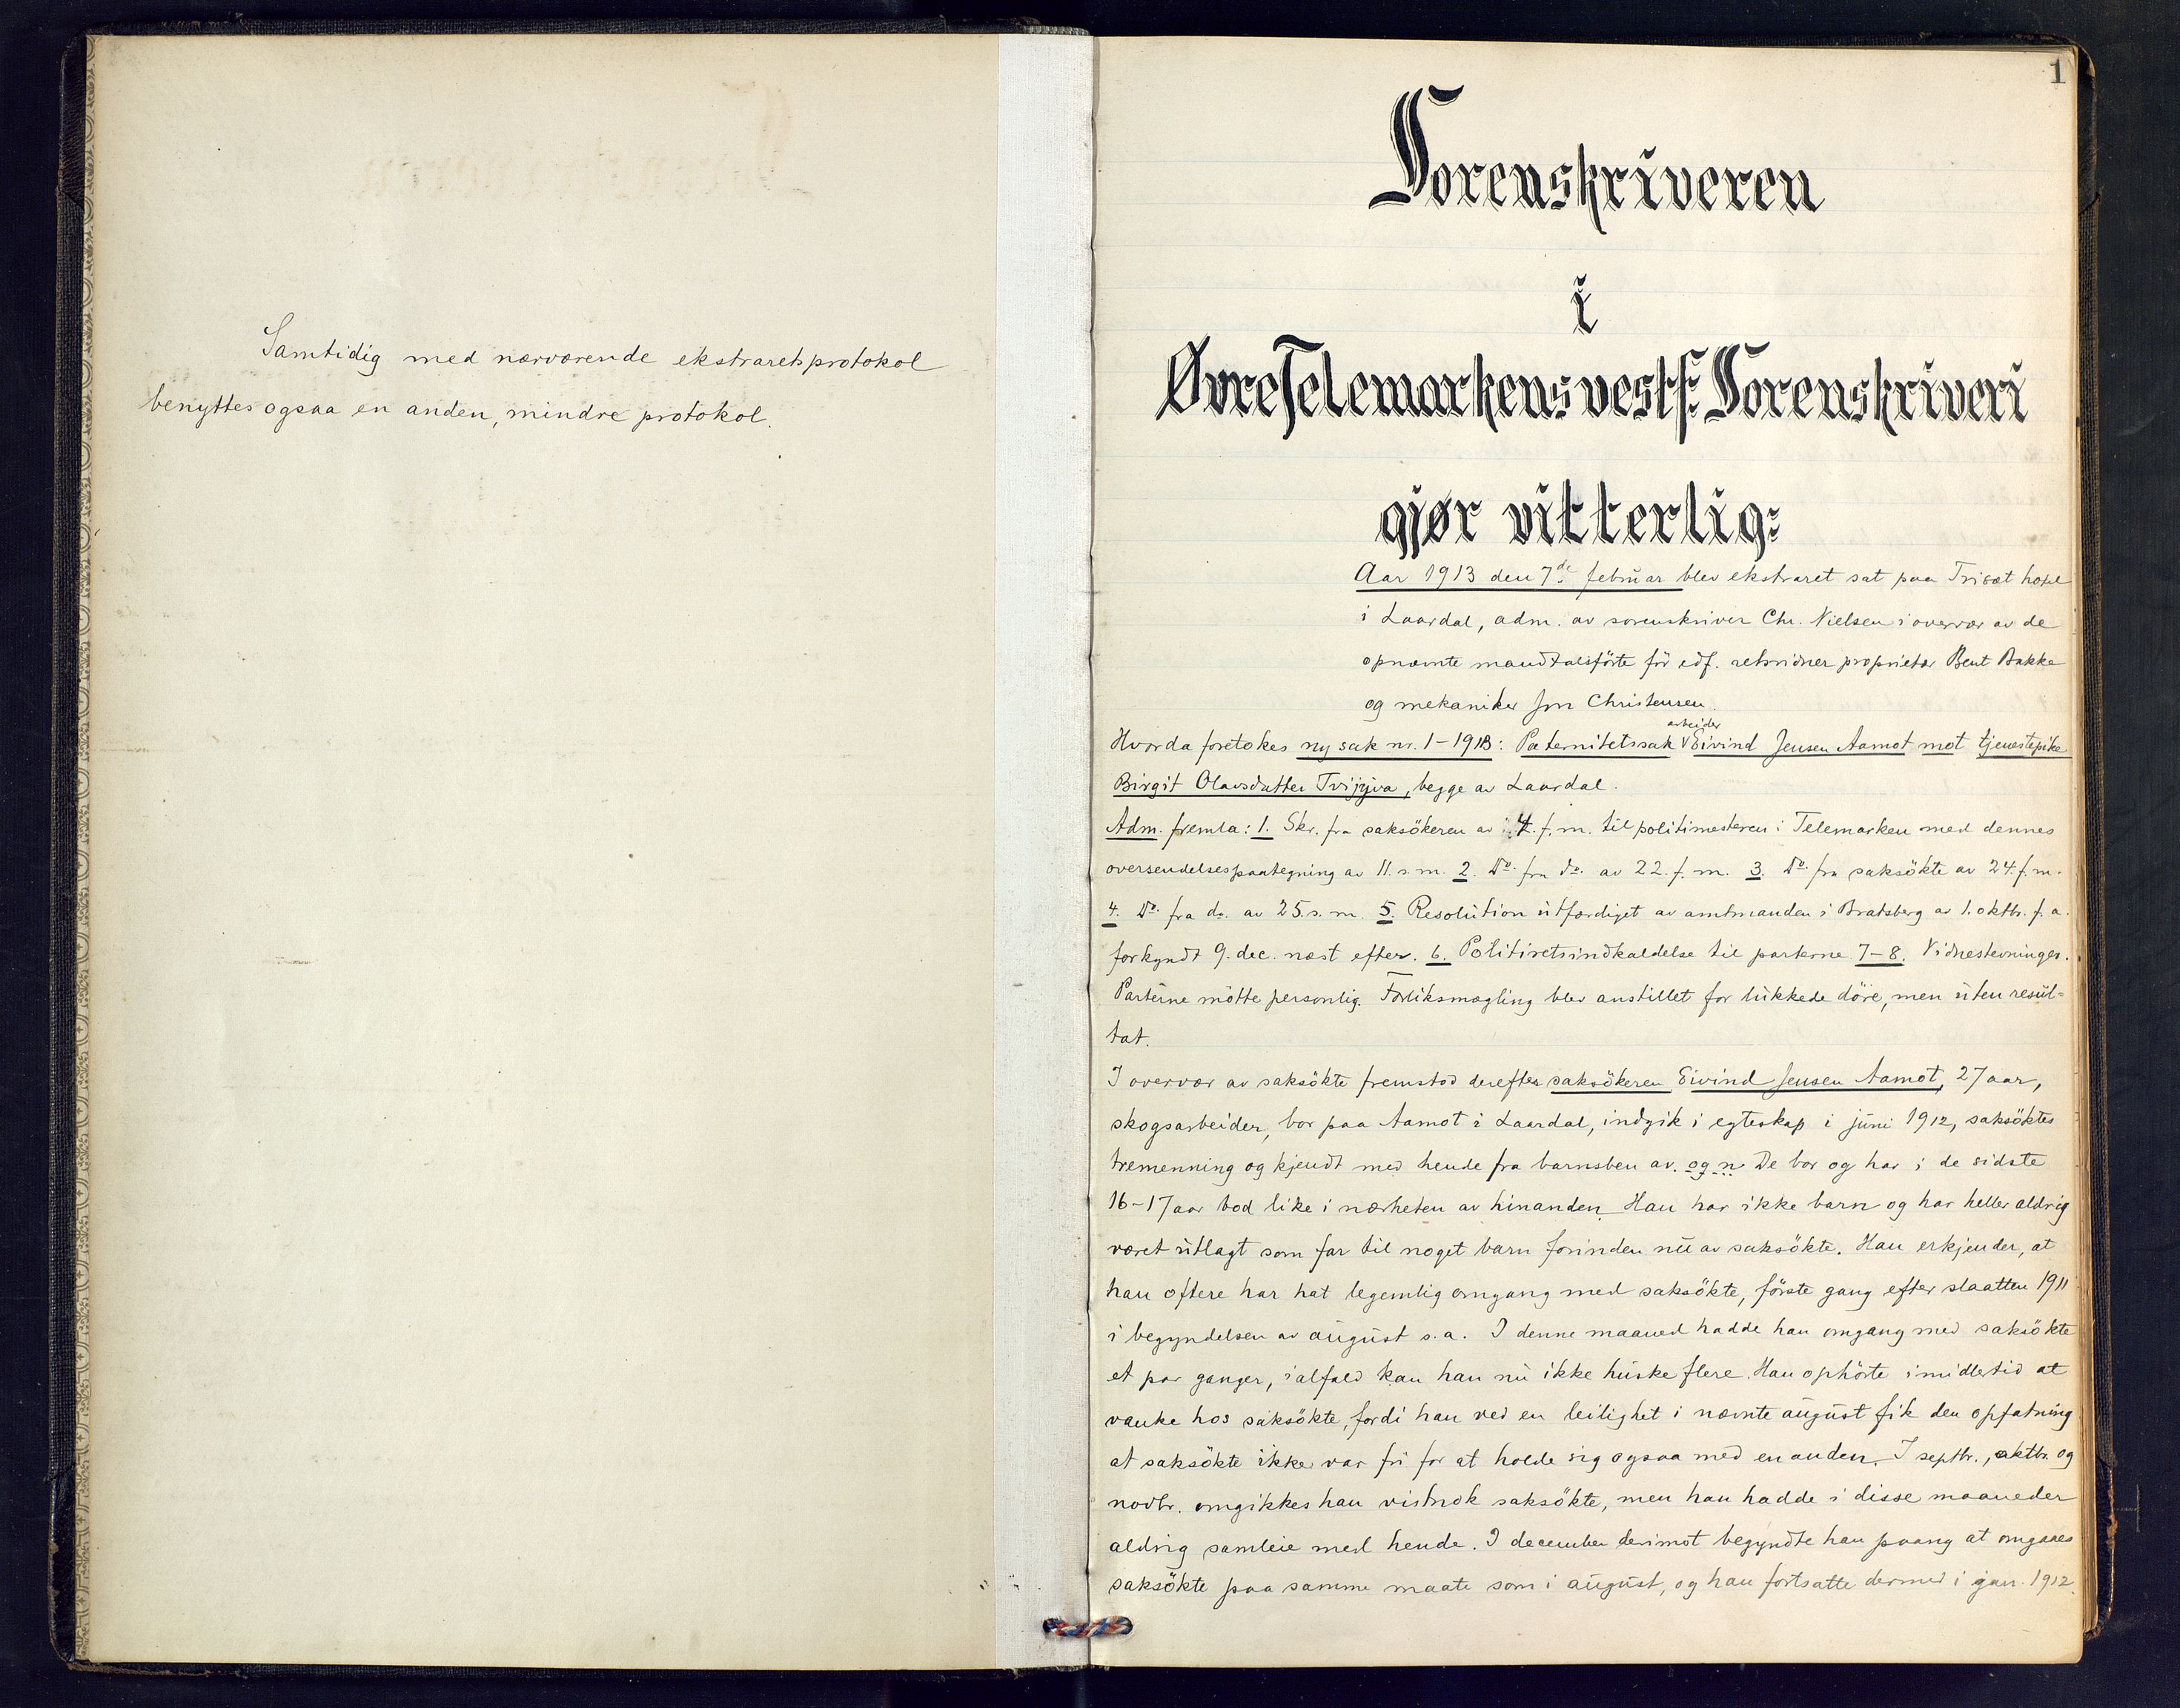 Samtidig med nærværende ekstraretsprotokol
benyttes ogsaa en anden, mindre protokol.
1
Sorenskriveren
i
Øvre Telemarkens vestf: Sorenskriveri
gjør vitterlig:
Aar 1913 den 7de februar blev ekstraret sat paa Trisæt hotel
i Laardal, adm. av sorenskriver Chr. Nielsen i overvær av de
opnævnte mandtalsførte før edf. retsvidner proprietær Bent Bakke
og mekaniker Jon Christensen.
Hvorda foretokes ny sak nr. 1-1913: Paternitetssak arbeider Eivind Jensen Aamot mot tjenestepike
Birgit Olavsdatter, begge av Laardal.
Adm. fremla: 1. Skr. fra saksökeren av 4. f.m. til politimesteren i Telemarken med dennes
oversendelsespaategning av 11. s.m. 2. Do. fra do. av 22. f.m. 3. Do. fra saksökte av 24. f.m.
4. Do. fra do. av 25. s.m. 5. Resolution utfærdiget av amtmanden i Bratsberg av 1. oktbr. f.a.
forkyndt 9. dec. næst efter. 6. Politiretsindkaldelse til parterne 7-8. Vidnestevninger.
Parterne mötte personlig. Forliksmægling blev anstillet for lukkede döre, men uten resul-
tat.
I overvær av saksökte fremstod derefter saksökeren Eivind Jensen Aamot, 27 aar,
skogsarbeider, bor paa Aamot i Laardal, indgik i egteskap i juni 1912, saksöktes
tremenning og kjendt med hende fra barnsben av. og n De bor og har i de sidste
16-17 aar bod like i nærheten av hinanden. Han har ikke barn og har heller aldrig
været utlagt som far til noget barn forinden nu av saksökte. Han erkjender, at
han oftere har hat legemlig omgang med saksökte, förste gang efter slaatten 1911
i begyndelsen av august s.a. I denne maaned hadde han omgang med saksökte
et par ganger, ialfald kan han nu ikke huske flere. Han ophörte imidlertid at
vanke hos saksökte, fordi han ved en leilighet i nævnte august fik den opfatning
at saksökte ikke var fri for at holde sig ogsaa med en anden. I septbr., oktbr. og
novbr. omgikkes han vistnok saksökte, men han hadde i disse maaneder
aldrig samleie med hende. I december derimot begyndte han paany at omgaaes
saksökte paa samme maate som i august, og han fortsatte dermed i jan. 1912.